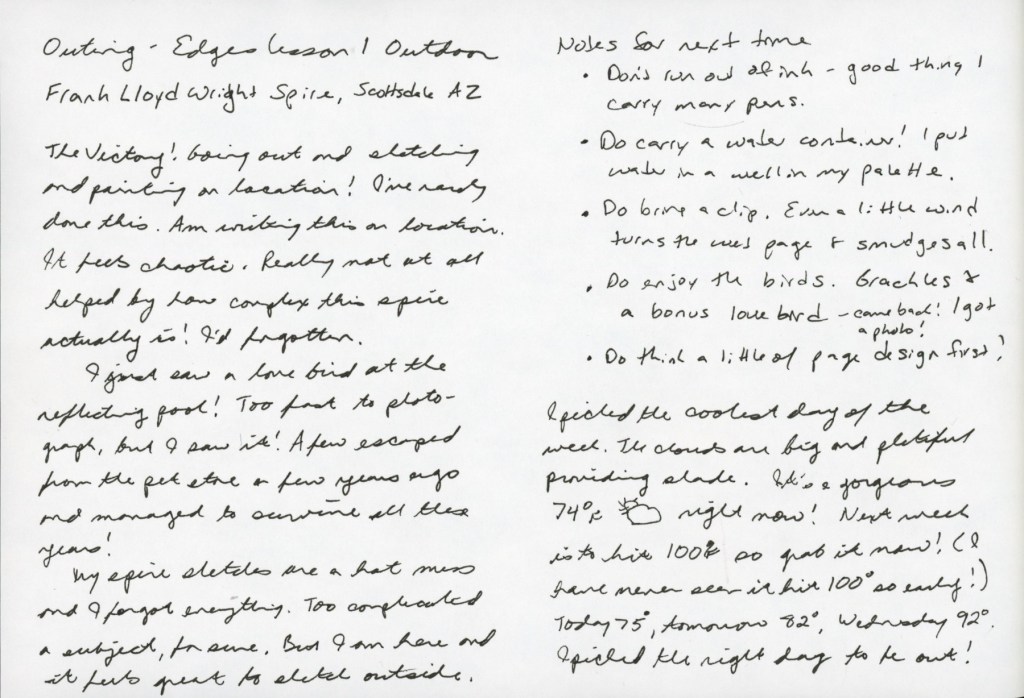 Outing - Edges Lesson 1 Outdoor
Frank Lloyd Wright Spire, Scottsdale AZ
The Victory! Going out and sketching
and painting on location! I've rarely
done this. Am writing this on location.
It feels chaotic. Really not at all
helped by how complex this spire
actually is! I'd forgotten.
I just saw a love bird at the
reflecting pool! Too fast to photo-
graph, but I saw it! A few escaped
from the pet store a few years ago
and managed to survive all these
years!
My spire sketches are a hot mess
and I forgot everything. Too complicated
a subject, for sure. But I am here and
it feels great to sketch outside.
Notes for next time
• Don't run out of ink - good thing I
carry many pens.
• Do carry a water container! I put
water in a well in my palette.
• Do bring a clip. Even a little wind
turns the wet page & smudges all.
• Do enjoy the birds. Grackles &
a bonus love bird - came back! I got
a photo!
• Do think a little of page design first!
I picked the coolest day of the
week. The clouds are big and plentiful
providing shade. It's a gorgeous
74°F right now! Next week
is to hit 100°F so grab it now! (I
have never seen it hit 100° so early!)
Today 75°, tomorrow 82°, Wednesday 92°.
I picked the right day to be out!